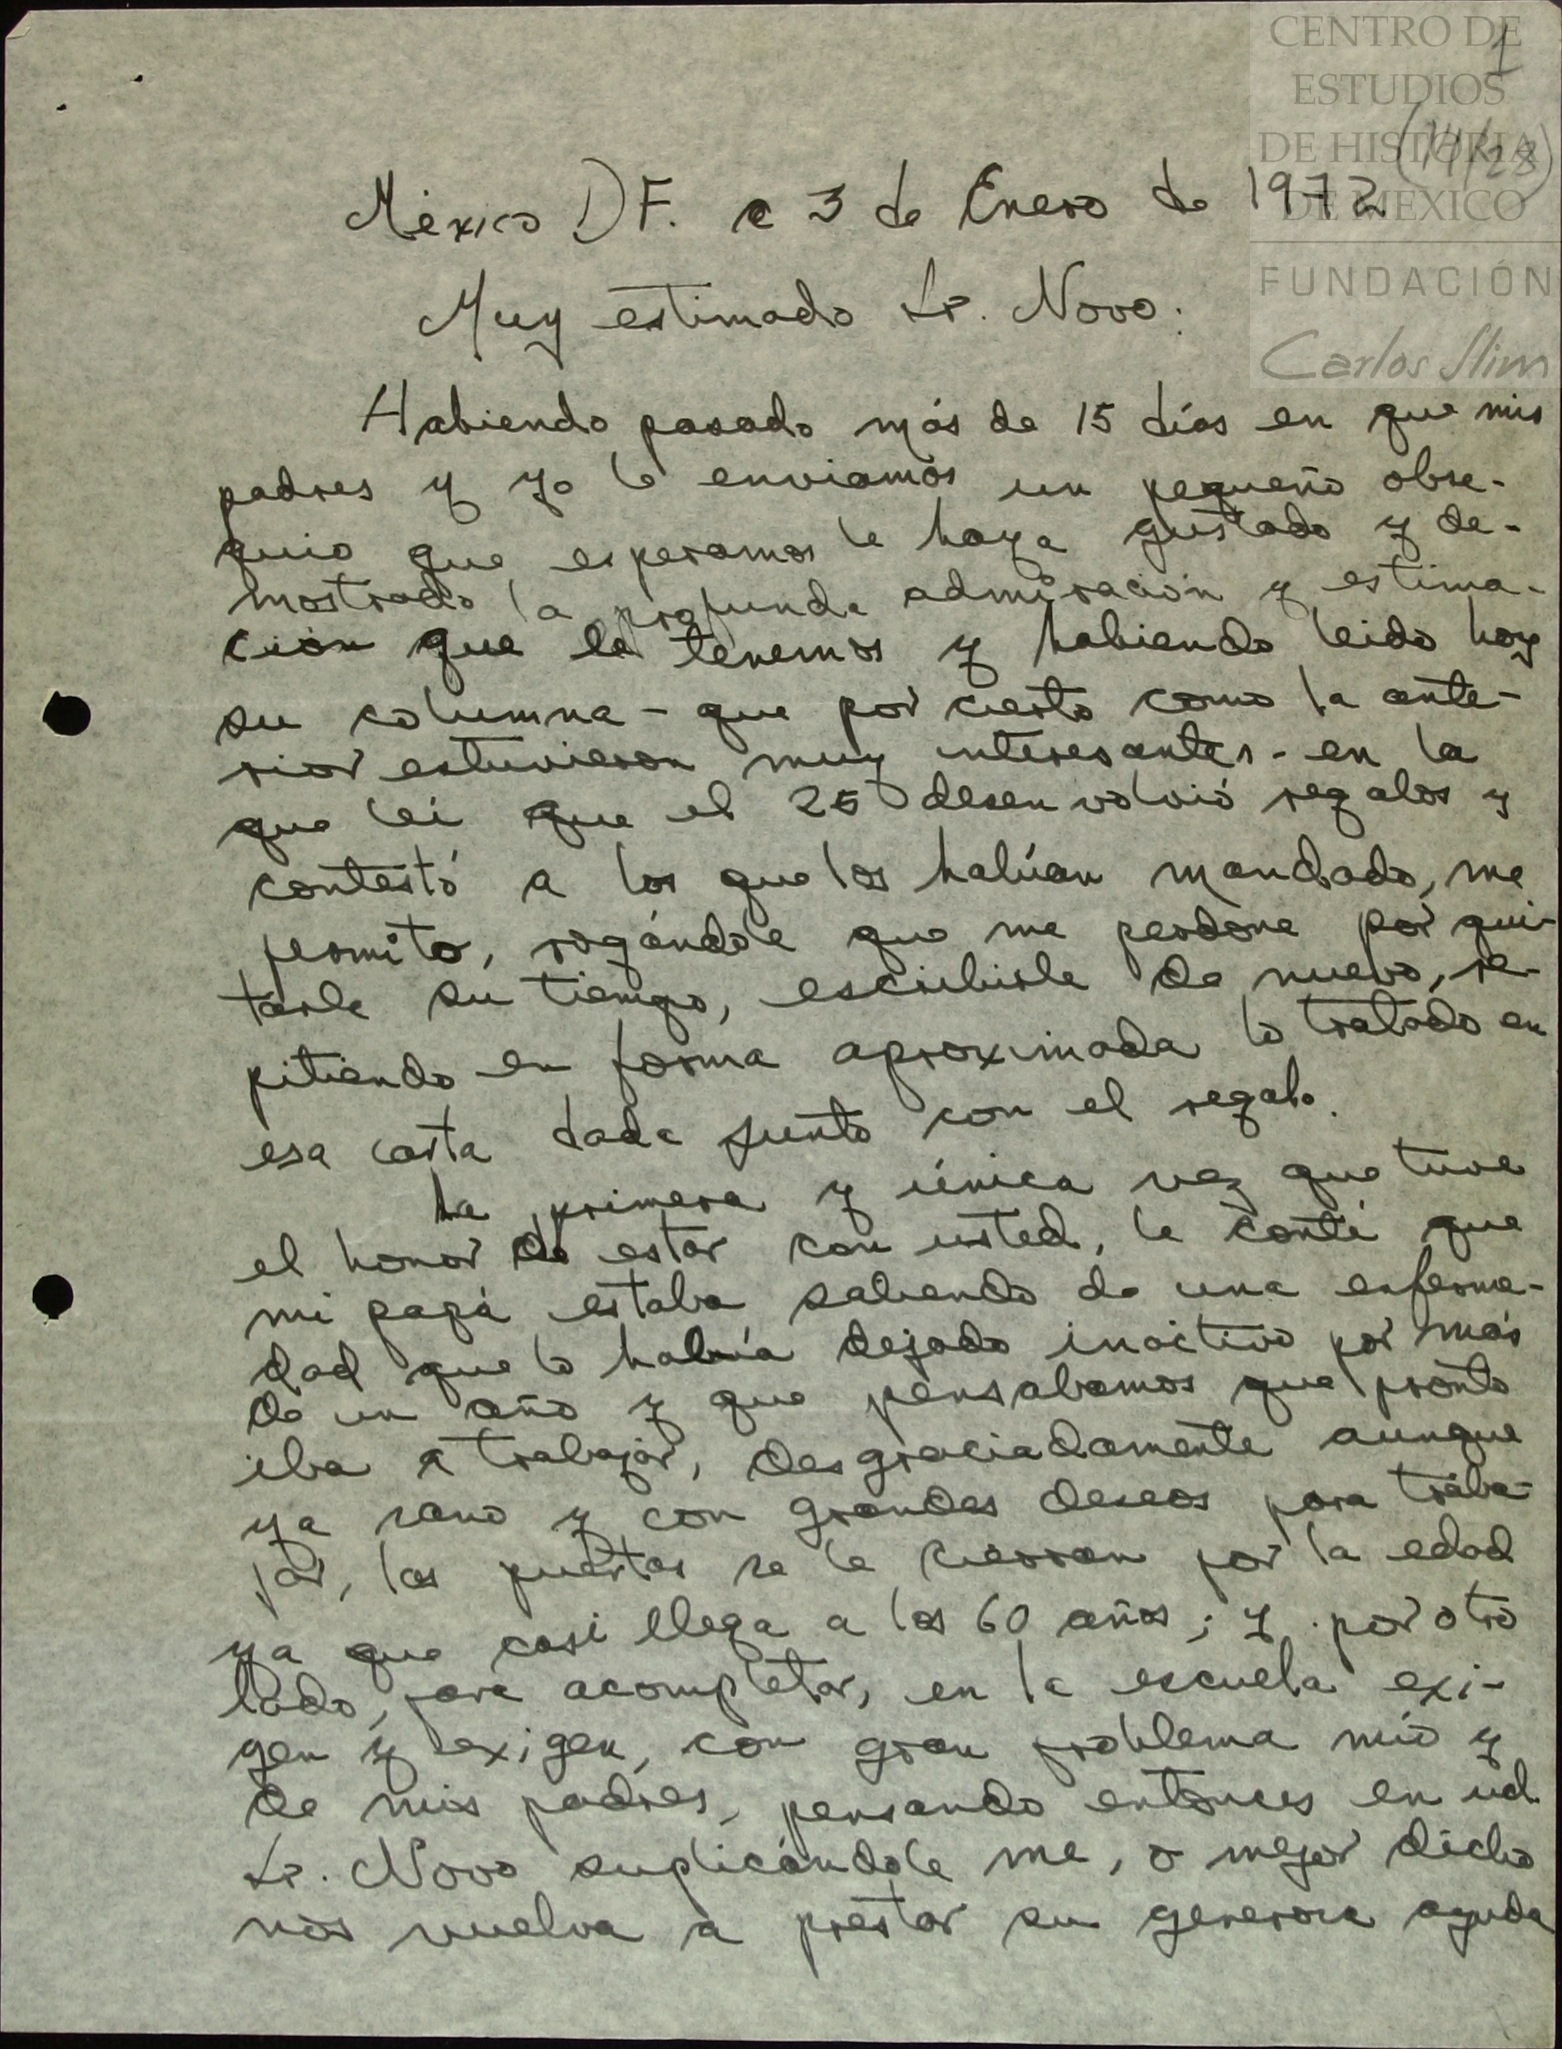 CENTRO DE
ESTUDIOS
DE HISTORIA
DE MEXICO
FUNDACIÓN
Carlos Slim
1
México DF. a 3 de Enero de 1972
Muy estimado Sr. Novo:
Habiendo pasado más de 15 días en que mis
padres y yo le enviamos un pequeño obse-
quio que esperamos le haya gustado y de-
mostrado la profunda admiración y estima-
ción que le tenemos y habiendo leido hoy
su columna - que por cierto como la ante-
rior estuvieron muy interesantes - en la
que leí que el 25 desenvolvió regalos y
contestó a los que los habían mandado, me
permito, rogándole que me perdone por qui-
tarle su tiempo, escribirle de nuevo, re-
pitiendo en forma aproximada lo tratado en
esa carta dada junto con el regalo.
La primera y única vez que tuve
el honor de estar con usted, le conté que
mi papá estaba saliendo de una enferme-
dad que lo había dejado inactivo por más
de un año y que pensabamos que pronto
iba a trabajar, desgraciadamente aunque
ya sano y con grandes deseos para traba-
jar, las puertas se le cierran por la edad
ya que casi llega a los 60 años; y por otro
lado, para acompletar, en la escuela exi-
gen y exigen, con gran problema mío y
de mis padres, pensando entonces en ud.
Sr. Novo suplicándole me, o mejor dicho
nos vuelva a prestar su generosa ayuda